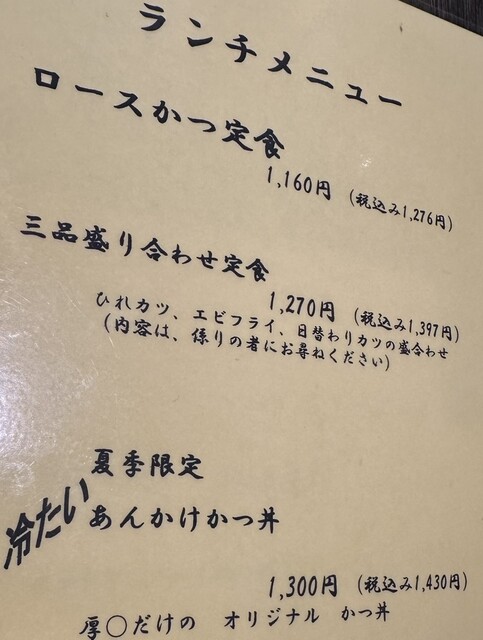 ランチメニュー
ロースかつ定食
1,160円 (税込み1,276円)
三品盛り合わせ定食
1,270円 (税込み1,397円)
ひれカツ、エビフライ、日替わりカツの盛合わせ
(内容は、係りの者にお尋ねください)
夏季限定
冷たい あんかけかつ丼
1,300円 (税込み1,430円)
厚〇だけの オリジナル かつ丼